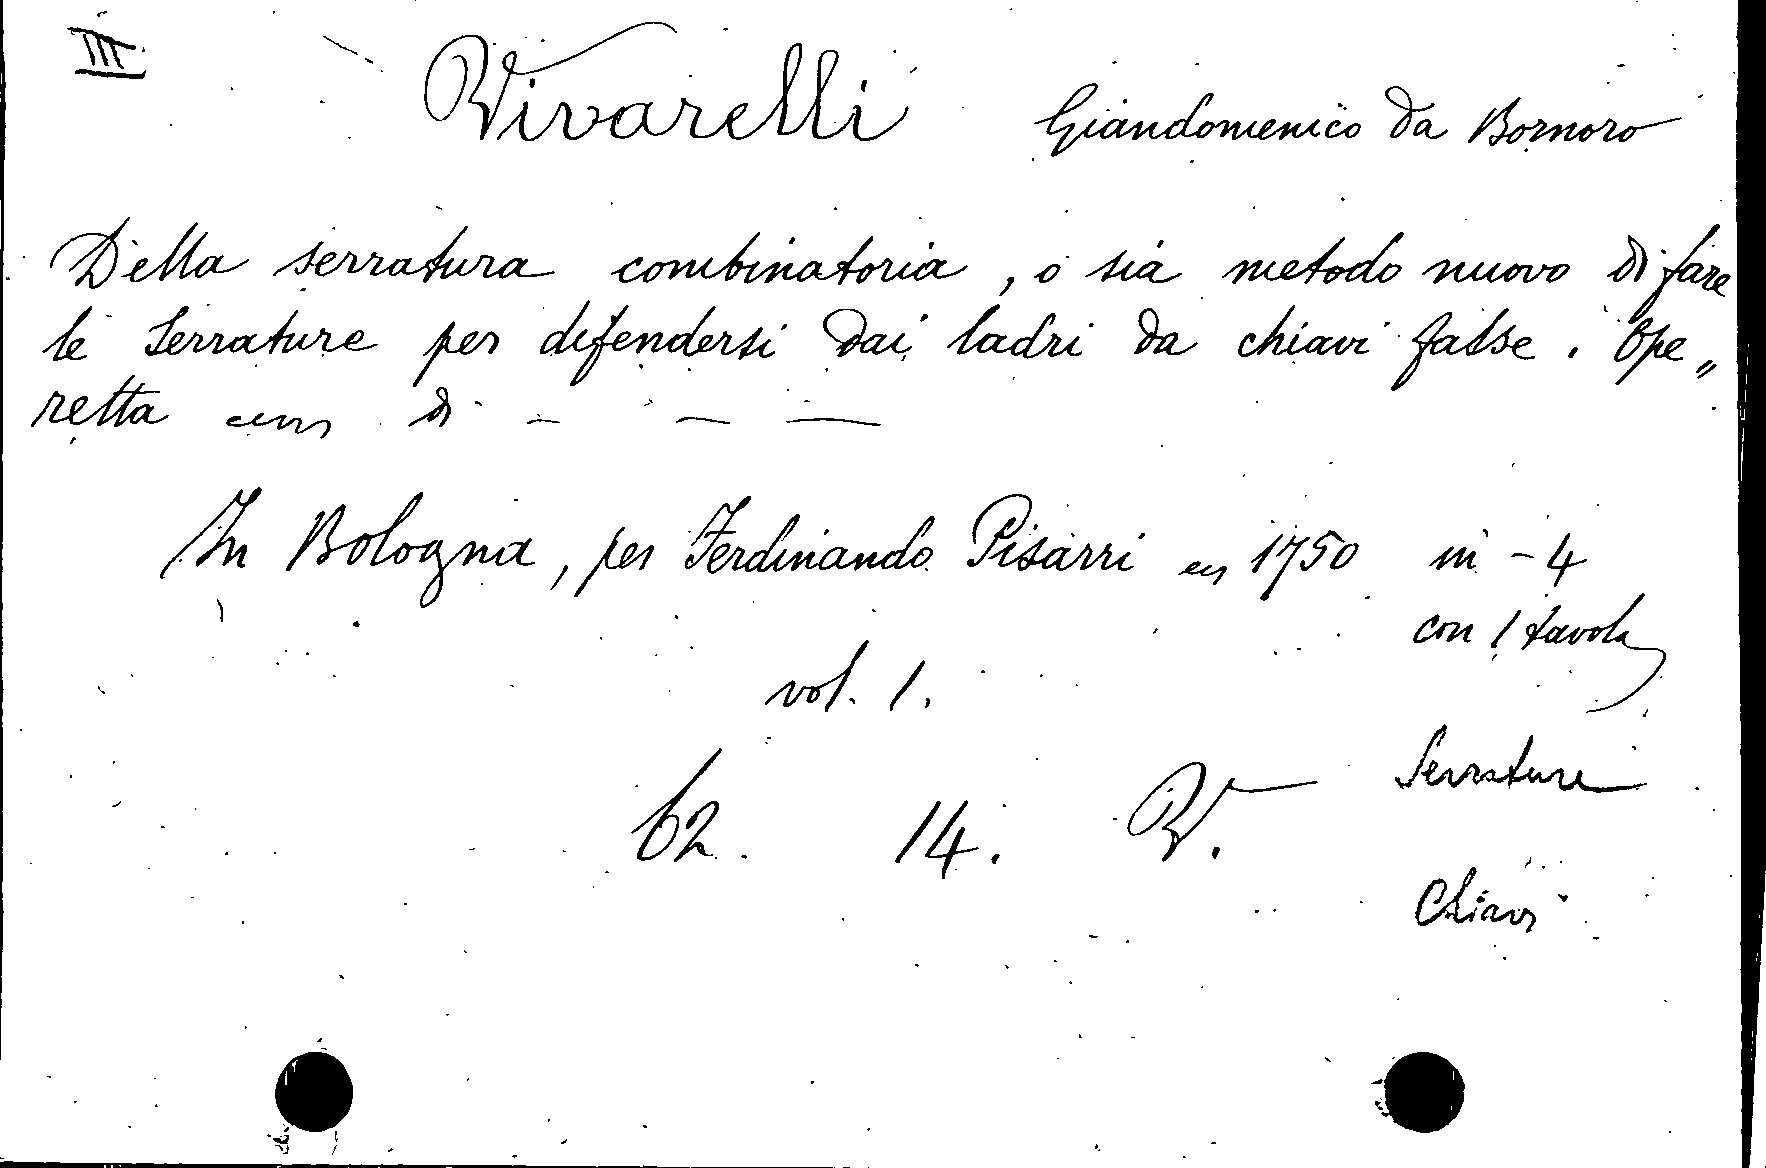 III
Vivarelli Giandomenico da Bornoro
Della serratura combinatoria, o sia metodo nuovo di fare
le Serrature per difendersi dai ladri da chiavi false. Ope„
retta di - — —
In Bologna, per Ferdinando Pisarri 1750 in - 4
con 1 tavola
vol. 1.
62. 14. V.
Serrature
Chiavi